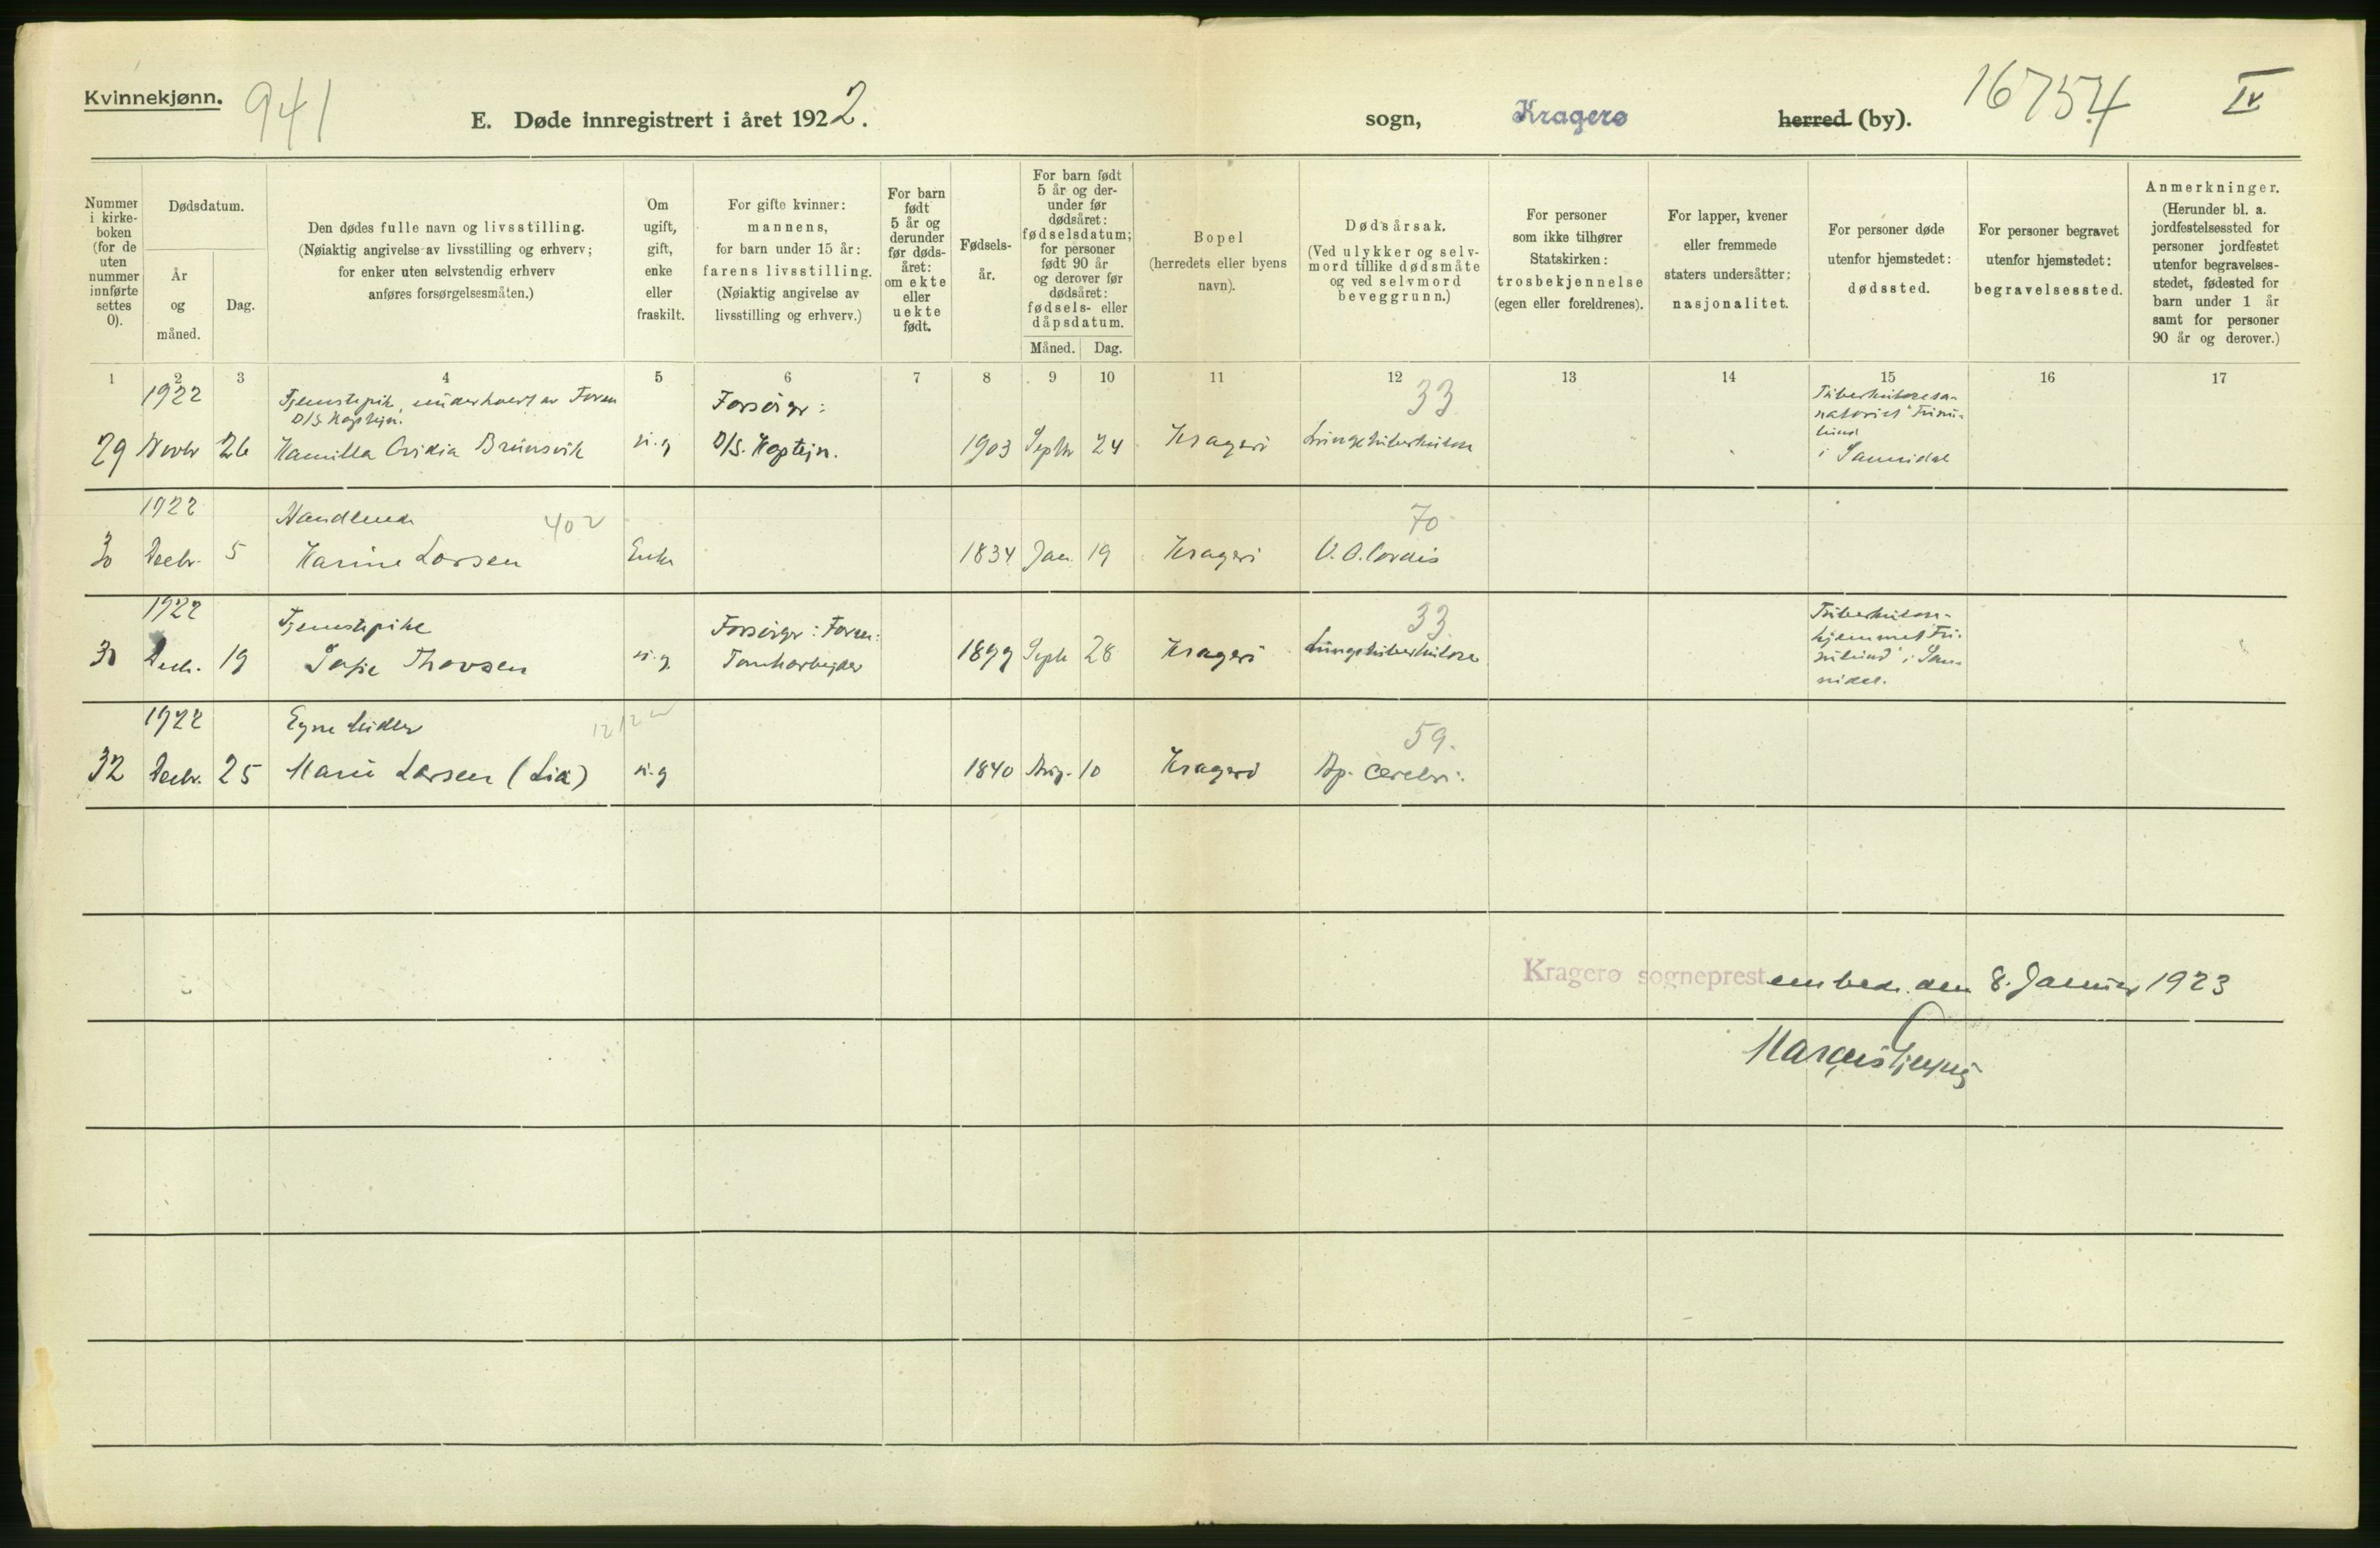 Kvinnekjønn.
941
E. Døde innregistrert i året 1922.
sogn,
Kragerø
herred (by).
16754
IV
Nummer i kirke-boken (for de uten nummer innførte settes 0).
Dødsdatum.
År og måned.
Dag.
Den dødes fulle navn og livsstilling.
(Nøiaktig angivelse av livsstilling og erhverv;
for enker uten selvstendig erhverv
anføres forsørgelsesmåten.)
Om ugift, gift, enke eller fraskilt.
For gifte kvinner:
mannens,
for barn under 15 år:
farens livsstilling.
(Nøiaktig angivelse av
livsstilling og erhverv.)
For barn født 5 år og derunder før døds-året: om ekte eller uekte født.
Fødsels-år.
For barn født 5 år og der-under før dødsåret: fødselsdatum; for personer født 90 år og derover før dødsåret: fødsels- eller dåpsdatum.
Måned.
Dag.
Bopel
(herredets eller byens
navn).
Dødsårsak.
(Ved ulykker og selv-
mord tillike dødsmåte
og ved selvmord
beveggrunn.)
For personer
som ikke tilhører
Statskirken:
trosbekjennelse
(egen eller foreldrenes).
For lapper, kvener
eller fremmede
staters undersåtter;
nasjonalitet.
For personer døde
utenfor hjemstedet:
dødssted.
For personer begravet
utenfor hjemstedet:
begravelsessted.
Anmerkninger.
(Herunder bl. a.
jordfestelsessted for
personer jordfestet
utenfor begravelses-
stedet, fødested for
barn under 1 år
samt for personer
90 år og derover.)
1 2 3 4 5 6 7 8 9 10 11 12 13 14 15 16 17
1922
Tjenestepik, underholdt av Faren
D/S. Kaptejn.
Forsörger:
33
Tuberkulosesa-
natoriet "Furu-
lund"
i Sannidal
29 Novbr 26 Kamilla Ovidia Brunsvik u.g D/S. Kaptejn. 1903 Septbr 24 Kragerö Lungetuberkulose
1922
Handlende
402
70
30 Decbr. 5 Karine Larsen Enke 1834 Jan. 19 Kragerö V. O. Cordis
1922
Tjenestepike
Forsörger: Faren:
33
Tuberkulose-
hjemmet "Fu-
rulund" i San-
nidal.
31 Decb. 19 Thovsen u.g. Tomtearbejder 1899 Septb 28 Kragerö Lungetuberkulose
1922
Egne Midler
59.
32 Decbr. 25 Marie Larsen (Lia) u.g 1840 Aug. 10 Kragerö Ap. Cerebri.
Kragerø sogneprest embede. den 8. Januar 1923